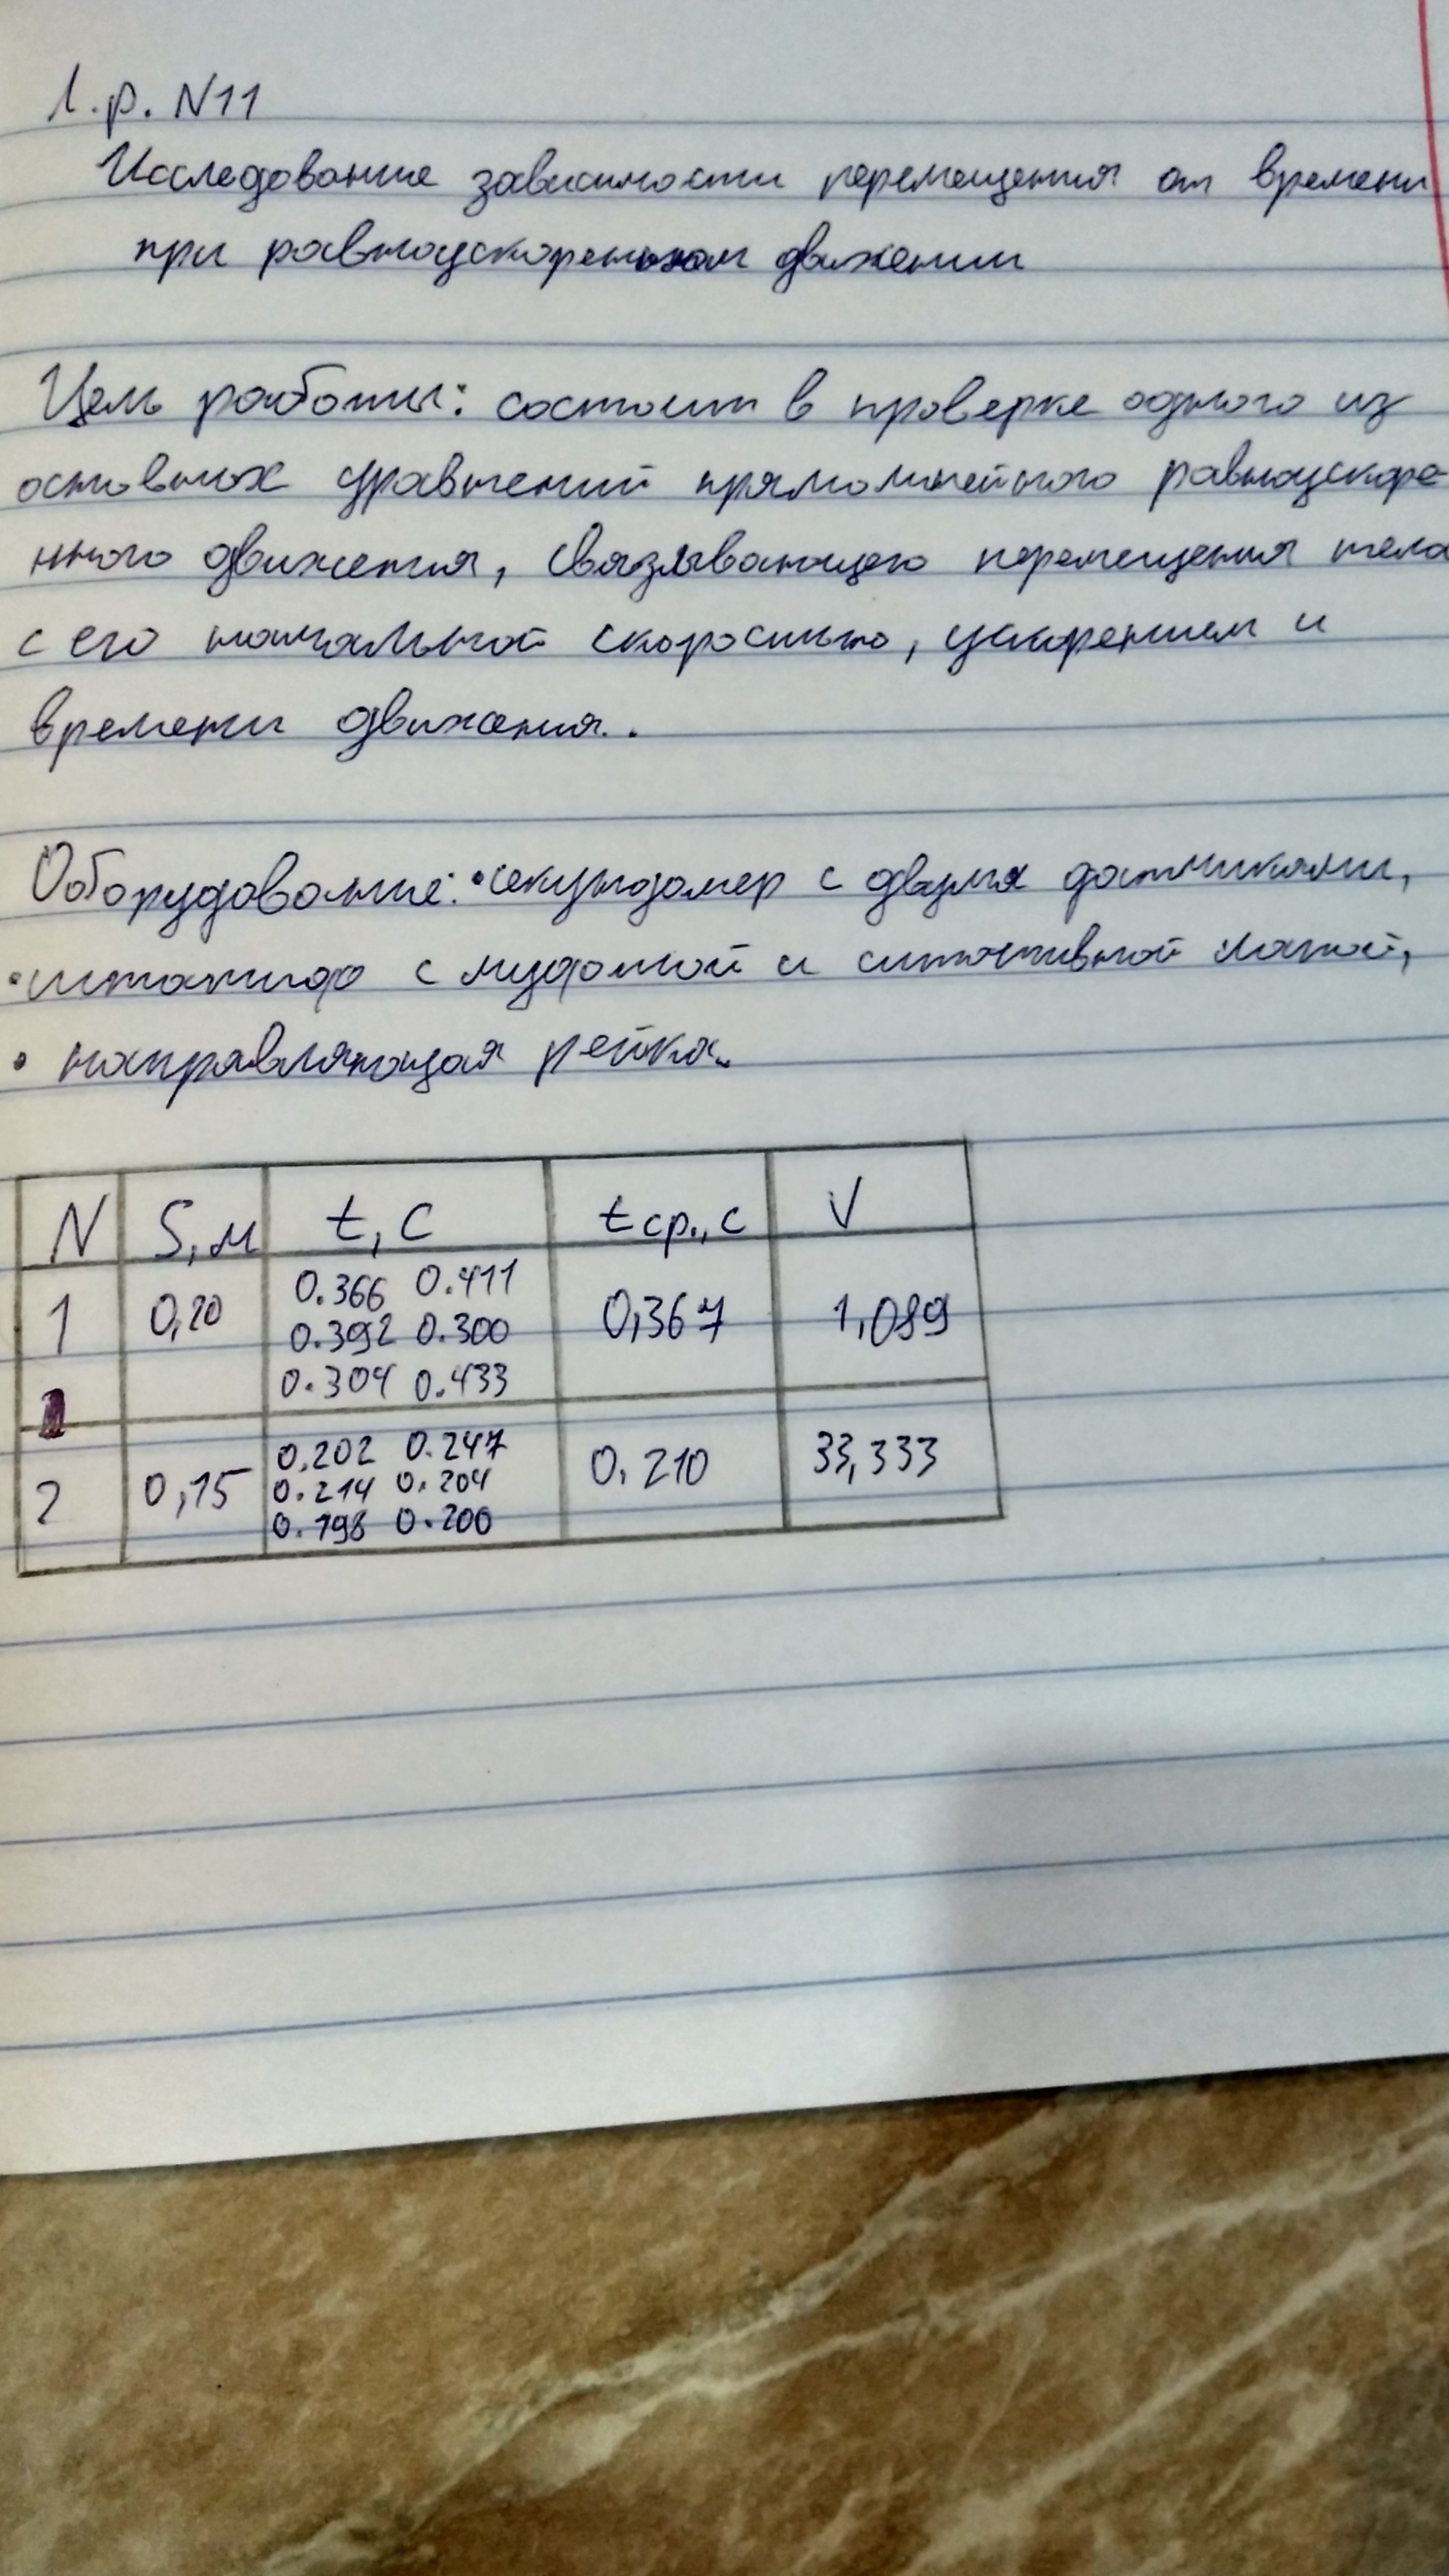 Л.р. N11
Исследование зависимости перемещения от времени
при равноускоренном движении
Цель работы: состоит в проверке одного из
основных уравнений прямолинейного равноускоре-
нного движения, связывающего перемещения тела
с его начальной скоростью, ускорением и
времени движения.
Оборудование: • секундомер с двумя датчиками,
• штатив с муфтой и лапкой,
• направляющая рейка.
N S,м t,с tср.,с V
0.366 0.411
1 0,20 0.392 0.300 0,367 1,089
0.304 0.433
0.202 0.247
2 0,15 0.214 0.204 0.210 33,333
0.198 0.200